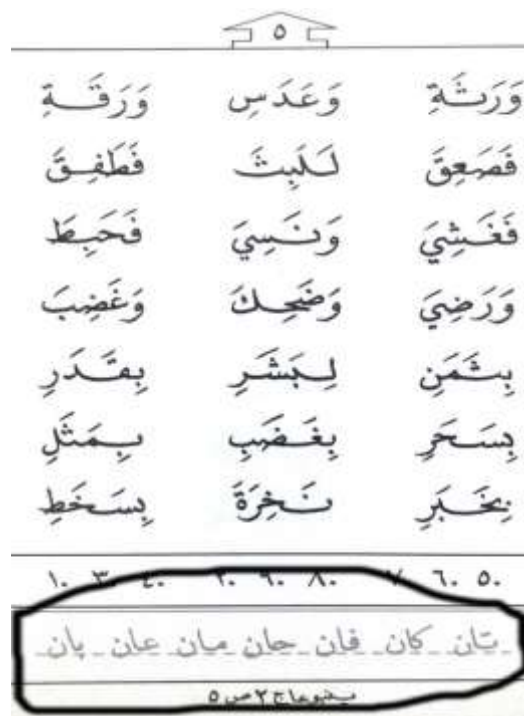 ٥
وَرَثَةِ وَعَدَسِ وَرَقَةِ
فَصَعِقَ لَلَبِثَ فَطَفِقَ
فَغَشِيَ وَنَسِيَ فَحَبِطَ
وَرَضِيَ وَضَحِكَ وَغَضِبَ
بِثَمَنِ لِبَشَرِ بِقَدَرِ
بِسَحَرِ بِغَضَبِ بِمَثَلِ
بِخَبَرِ نَخِرَةَ بِسَخَطِ
٥٠ ٦٠ ٧٠ ٨٠ ٩٠ ٢٠ ٤٠ ٣٠ ١٠
تان كان فان حان مان عان بان
ينبوعا ج ٢ ص ٥